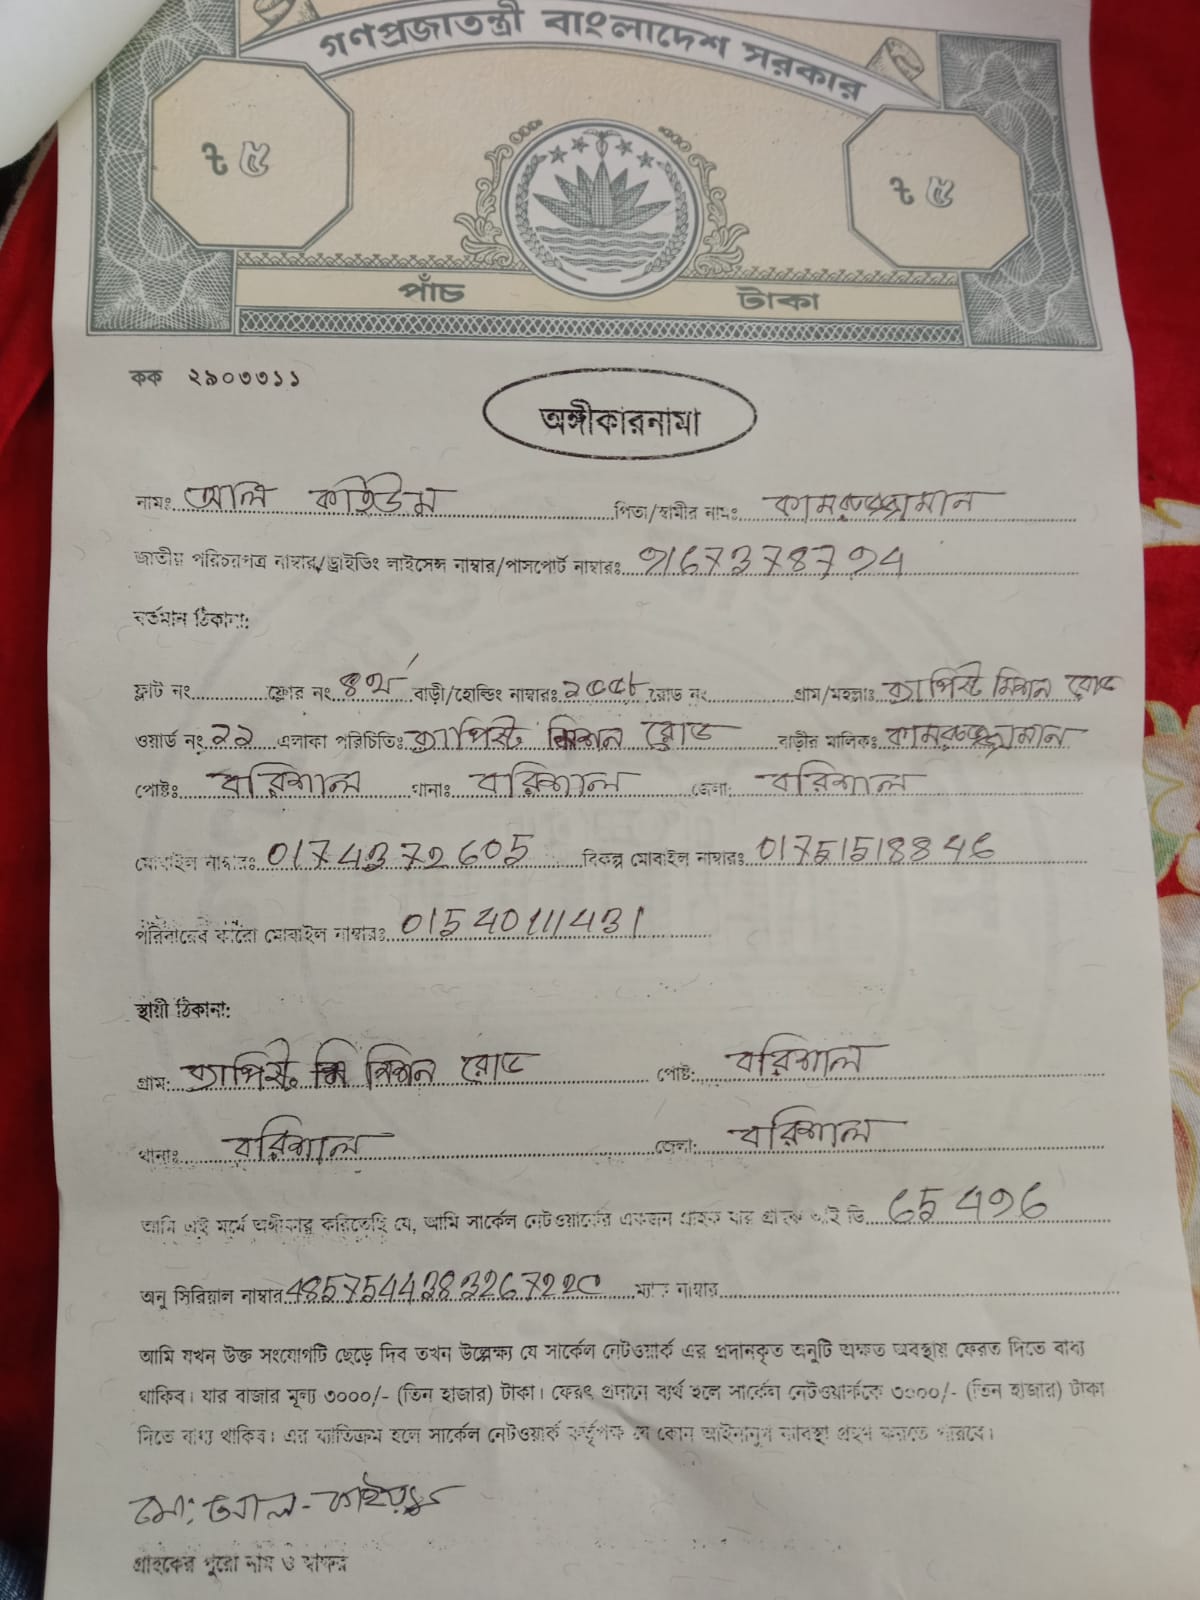 গণপ্রজাতন্ত্রী বাংলাদেশ সরকার
৳ ৫ ৳ ৫
পাঁচ টাকা
কক ২৯০৩৩১১
অঙ্গীকারনামা
নামঃ আল কাইউম পিতা/স্বামীর নামঃ কামরুজ্জামান
জাতীয় পরিচয়পত্র নাম্বার/ড্রাইভিং লাইসেন্স নাম্বার/পাসপোর্ট নাম্বারঃ
বর্তমান ঠিকানা:
ফ্লাট নং ফ্লোর নং ৪র্থ বাড়ী/হোল্ডিং নাম্বারঃ রোড নং গ্রাম/মহল্লাঃ ব্যাপিস্ট মিশন রোড
ওয়ার্ড নং এলাকা পরিচিতিঃ ব্যাপিস্ট মিশন রোড বাড়ীর মালিকঃ কামরুজ্জামান
পোষ্টঃ বরিশাল থানাঃ বরিশাল জেলা: বরিশাল
মোবাইল নাম্বারঃ 0174372605 বিকল্প মোবাইল নাম্বারঃ 01751518846
পরিবারের কারো মোবাইল নাম্বারঃ 01540111431
স্থায়ী ঠিকানা:
গ্রাম: ব্যাপিস্ট মিশন রোড পোষ্ট: বরিশাল
থানাঃ বরিশাল জেলা: বরিশাল
আমি এই মর্মে অঙ্গীকার করিতেছি যে, আমি সার্কেল নেটওয়ার্কের একজন গ্রাহক যার গ্রাহক আই ডি 65496
অনু সিরিয়াল নাম্বার ম্যাক নাম্বার
আমি যখন উক্ত সংযোগটি ছেড়ে দিব তখন উল্লেক্ষ্য যে সার্কেল নেটওয়ার্ক এর প্রদানকৃত অনুটি অক্ষত অবস্থায় ফেরত দিতে বাধ্য
থাকিব। যার বাজার মূল্য ৩০০০/- (তিন হাজার) টাকা। ফেরৎ প্রদানে ব্যর্থ হলে সার্কেল নেটওয়ার্ককে ৩০০০/- (তিন হাজার) টাকা
দিতে বাধ্য থাকিব। এর ব্যতিক্রম হলে সার্কেল নেটওয়ার্ক কর্তৃপক্ষ যে কোন আইনানুগ ব্যবস্থা গ্রহণ করতে পারবে।
মো: আল-কাইয়ুম
গ্রাহকের পুরো নাম ও স্বাক্ষর